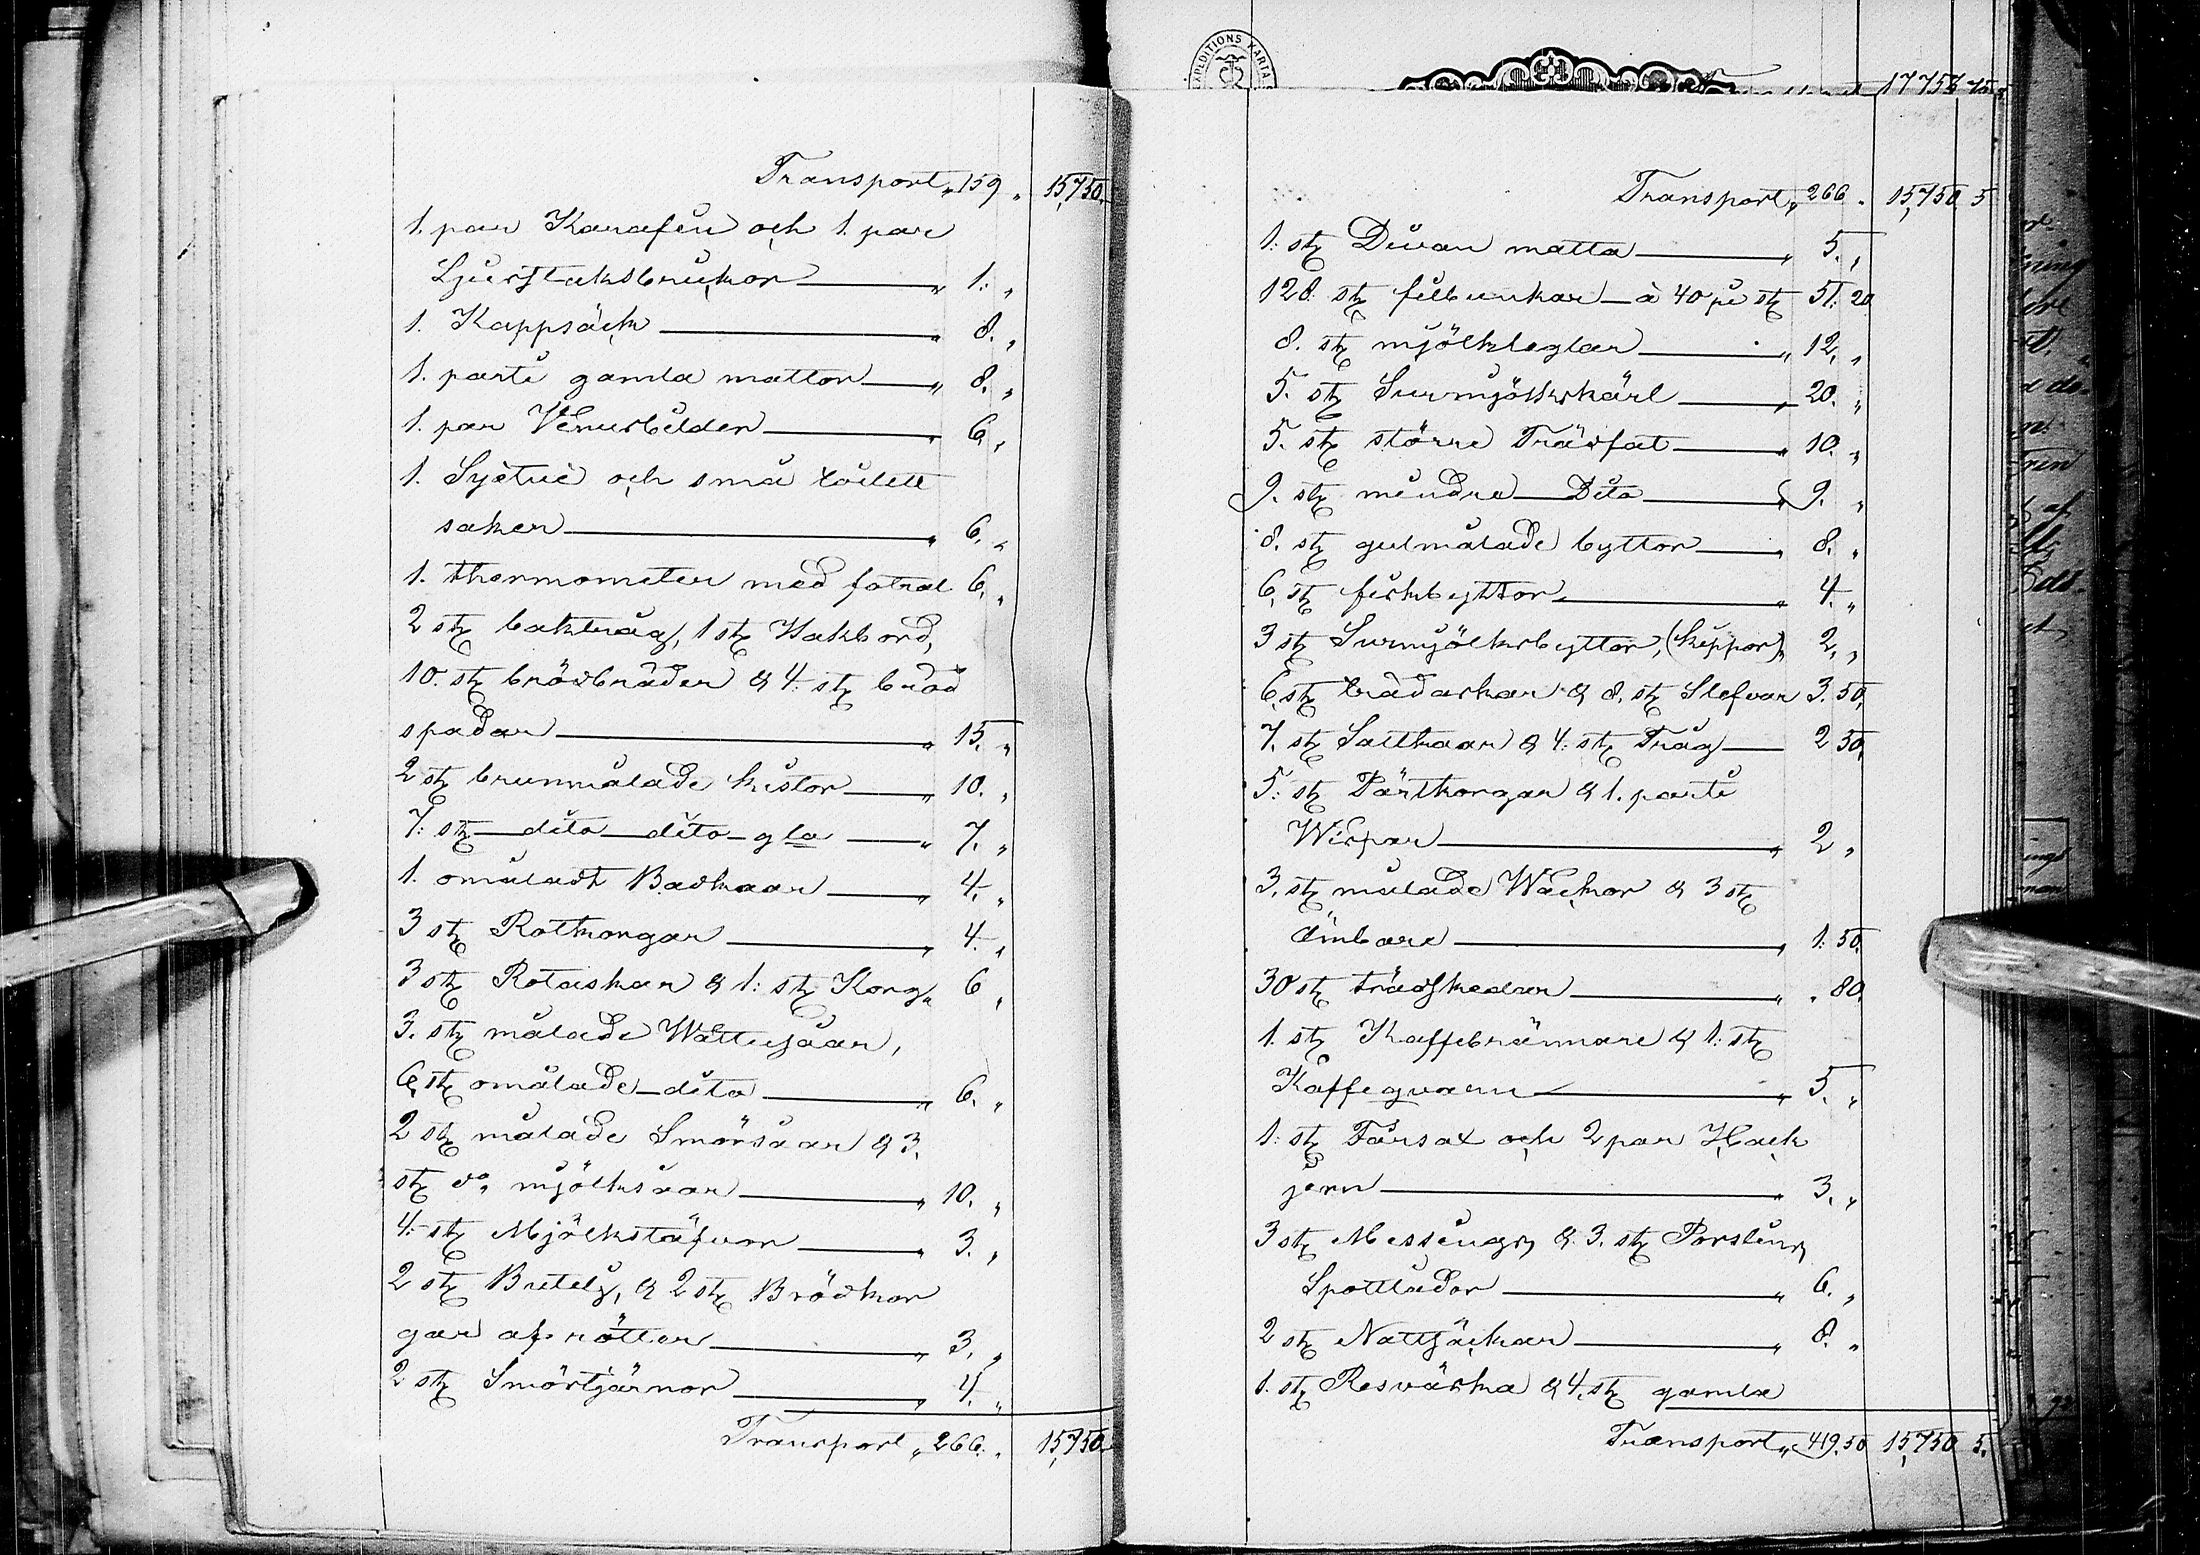 Transport „ 159 „ 15,750.
1. par Karafin och 1. par
Ljusstaksbrickor „ 1. „
1. Kappsäck „ 8. „
1. parti gamla mattor „ 8. „
1. par Venusbilder „ 6. „
1. Syetui och små toilett
saker „ 6. „
1. thermometer med fotral 6. „
2 st. baktråg, 1 st. Hakbord,
10. st. brödbräder & 4. st. bröd
spadar „ 15. „
2 st. brunmålade kistor „ 10. „
7. st. dito dito gla „ 7. „
1. omåladt Badkaar „ 4. „
3 st. Rotkorgar „ 4. „
3 st. Rotaskar & 1. st. Korg „ 6 „
3. st. målade Wattusåar,
6. st. omålade dito „ 6. „
2 st. målade Smörsåar & 3.
st. do. mjölksåar „ 10. „
4. st. Mjölkstäfvor „ 3. „
2 st. & 2 st. Brödkor
gar af rötter „ 3. „
2 st. Smörtjärnor „ 4. „
Transport „ 266. „ 15,750.
17756 75
EXPEDITIONS KARTA
Transport „ 266 „ 15,750. 5
1. st. Divan matta „ 5. „
128. st. filbunkar à 40 pi st. 51. 20
8. st. mjölkteglar „ 12. „
5. st. Surmjölkskärl „ 20. „
5. st. större Trädfat „ 10. „
9. st. mindre Dito „ 9. „
8. st. gulmålade byttor „ 8. „
6. st. fiskbyttor „ 4. „
3 st. Surmjölksbyttor, (kippor) „ 2. „
6. st. trådaskar & 8. st. Slefvar 3. 50.
7. st. Saltkaar & 4. st. Tråg 2 50.
5. st. Pärtkorgar & 1. parti
Wispar „ 2 „
3. st. målade Wackor & 3 st.
Ämbare „ 1. 50.
30 st. trädskedar „ „ 80.
1. st. Kaffebrännare & 1. st.
Kaffeqvarn „ 5. „
1. st. Fårsax och 2 par Hack
jern „ 3. „
3 st. Messings & 3. st. Porslins
Spottlådor „ 6. „
2 st. Nattsäckar „ 8. „
1. st. Resväska & 4. st. gamla
Transport „ 419. 50 15,750 5.